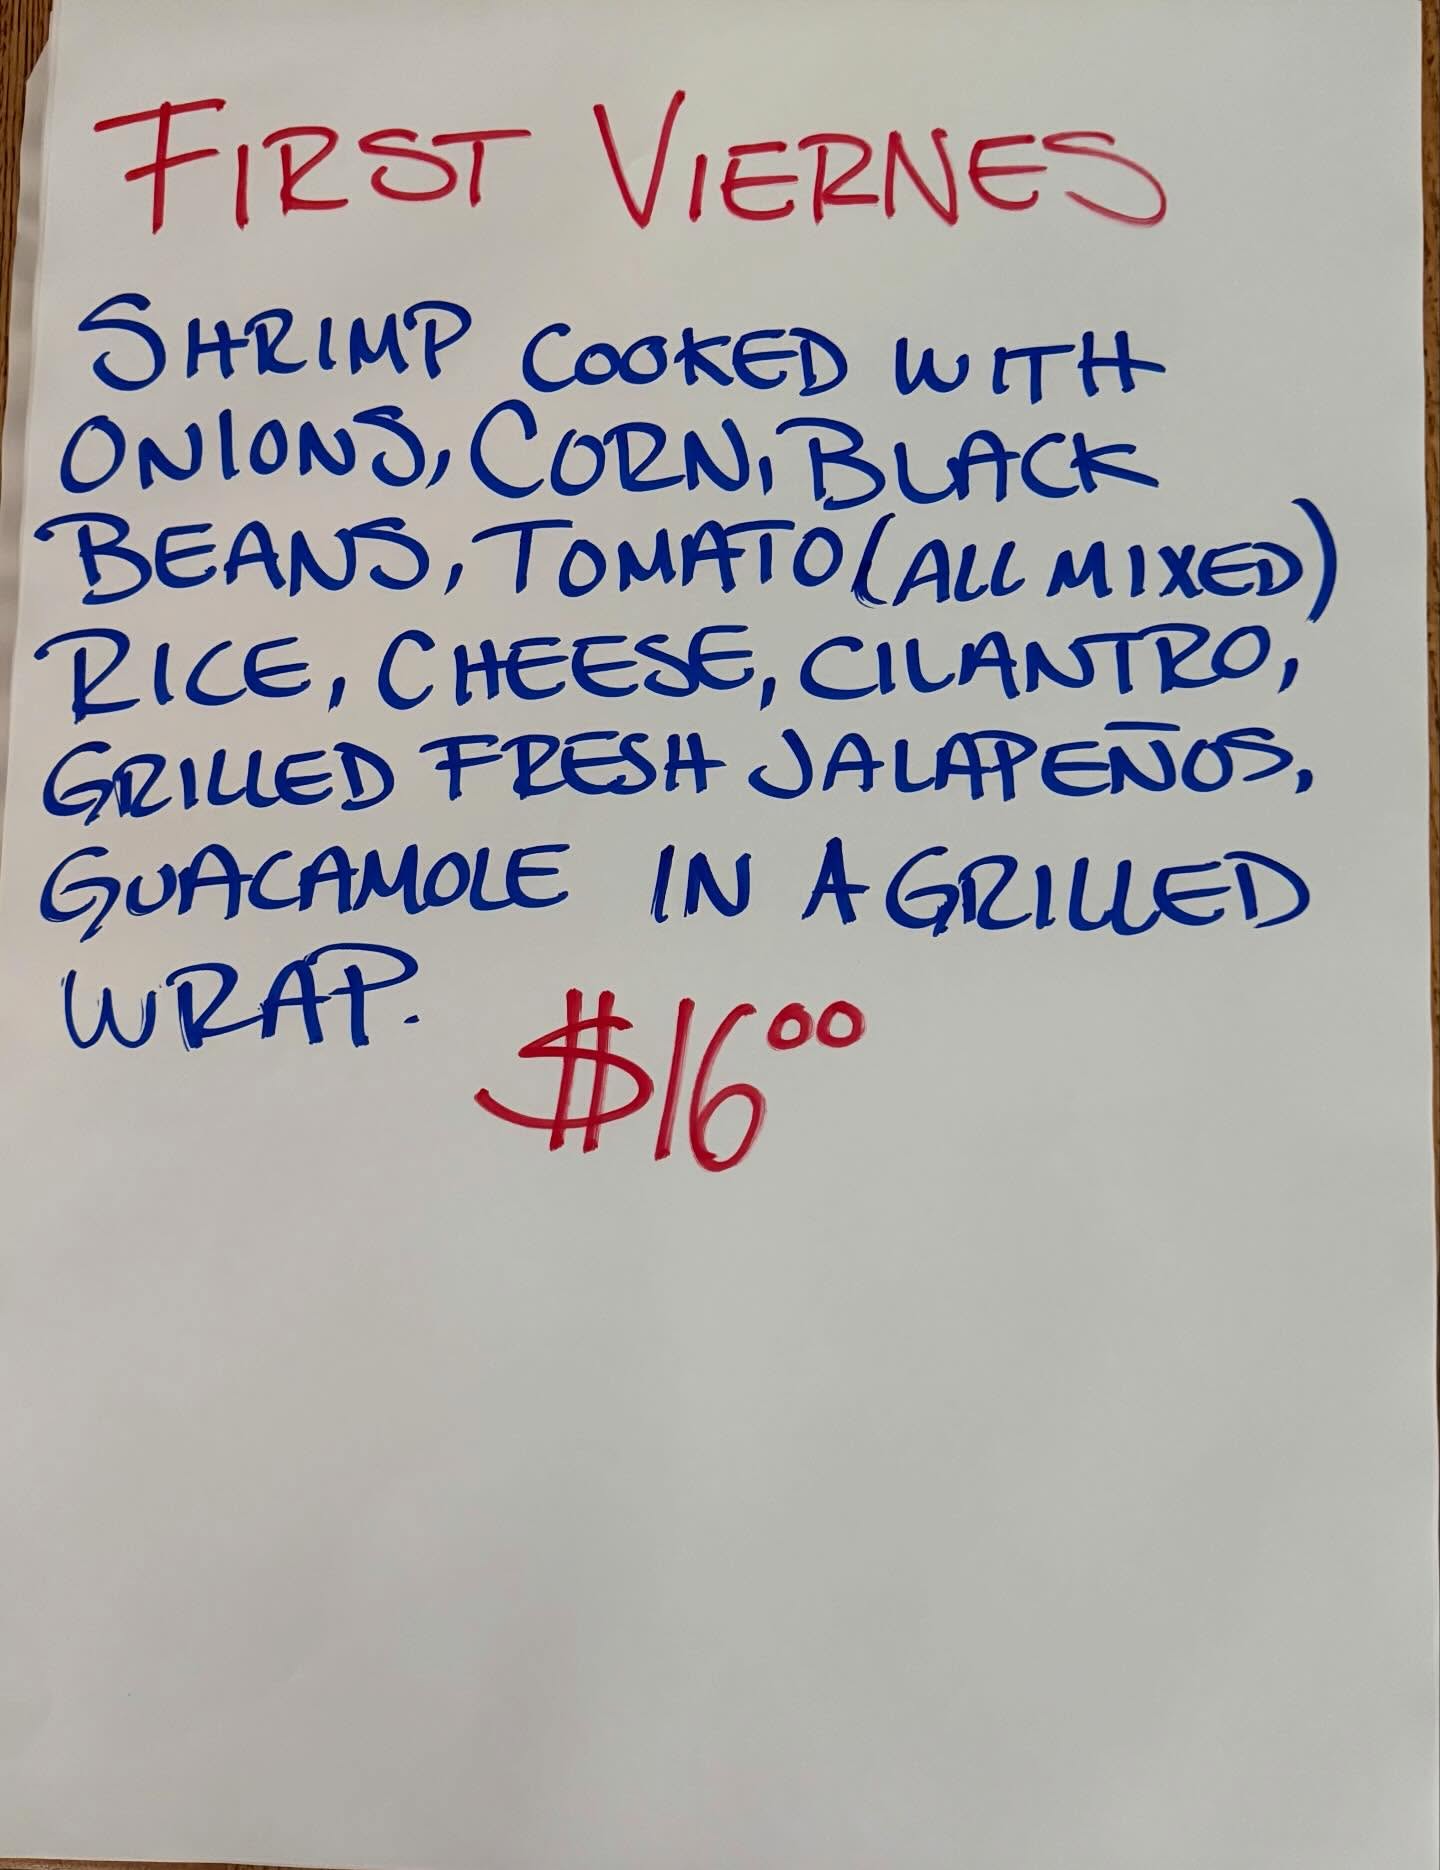 FIRST VIERNES
SHRIMP COOKED WITH
ONIONS, CORN, BLACK
BEANS, TOMATO (ALL MIXED)
RICE, CHEESE, CILANTRO,
GRILLED FRESH JALAPEÑOS,
GUACAMOLE IN A GRILLED
WRAP.
$16.00